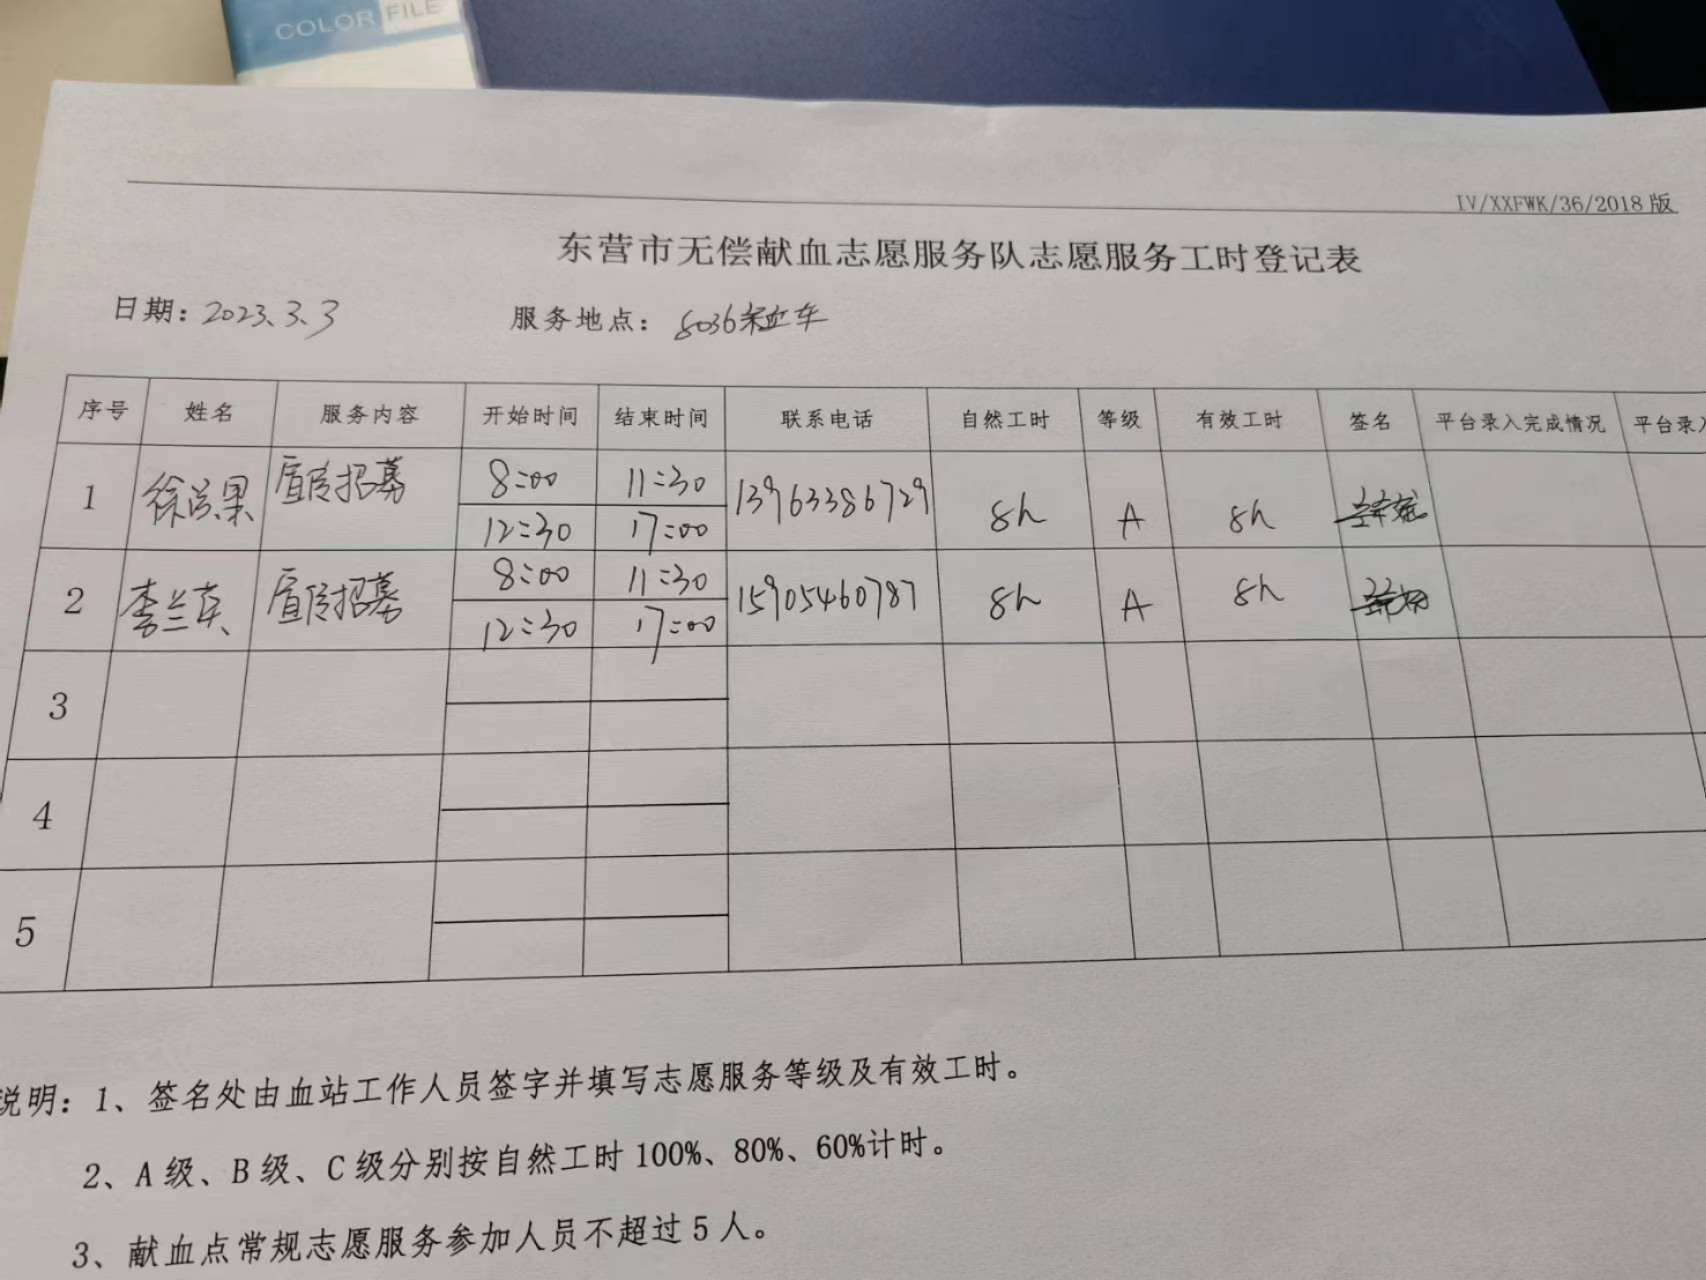 COLOR FILE
IV/XXFWK/36/2018版
东营市无偿献血志愿服务队志愿服务工时登记表
日期：2023.3.3 服务地点：8036采血车
序号 姓名 服务内容 开始时间 结束时间 联系电话 自然工时 等级 有效工时 签名 平台录入完成情况 平台录入
1 宣传招募 8:00 11:30 13963386729 8h A 8h
12:30 17:00
2 李兰英 宣传招募 8:00 11:30 15905460787 8h A 8h
12:30 17:00
3
4
5
说明：1、签名处由血站工作人员签字并填写志愿服务等级及有效工时。
2、A级、B级、C级分别按自然工时100%、80%、60%计时。
3、献血点常规志愿服务参加人员不超过5人。